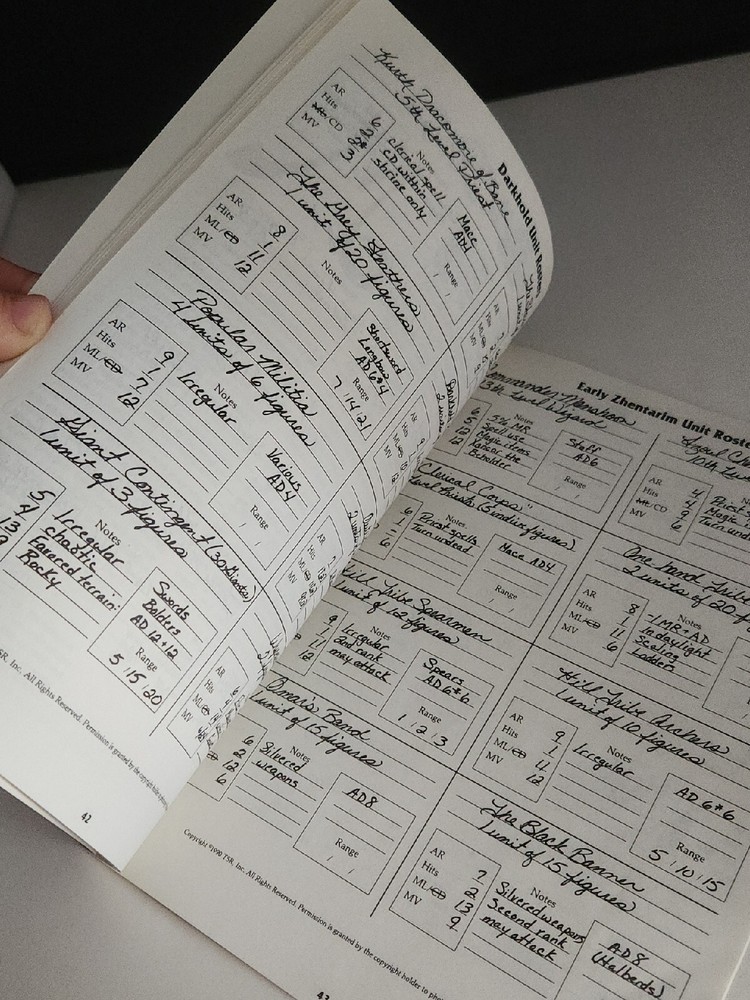 Darkhold Unit Rosters
5th Level Priest
AR 6
Hits
CD
MV 3
Notes
clerical spell
CD within
shrine only
Mace
AD4
Range
The Grey Feathers
1 unit of 20 figures
AR 8
Hits 1
ML/CD 11
MV 12
Notes
Shortsword
Longbow
AD 6*4
Range
7 / 14 / 21
Popular Militia
4 units of 6 figures
AR 9
Hits 1
ML/CD 7
MV 12
Notes
Irregular
Various
AD4
Range
Giant Contingent (30 Giants)
1 unit of 3 figures
5
4
13
Notes
Irregular
chaotic
Favored terrain:
Rocky
Swords
Bolders
AD 12+12
Range
5 / 15 / 20
TSR, Inc. All Rights Reserved. Permission is granted by the copyright holder
42
Early Zhentarim Unit Rosters
Commander Manshoon
Level Wizard
6
5
12
12
Notes
5% MR
Spell use
Magic items
Beholder
Staff
AD6
Range
10th Level
AR 4
Hits 4
CD 9
MV 6
Magic
Turn undead
Clerical Corps"
6
1
6
Notes
Priest spells
Turn undead
Mace AD4
Range
2 units of 20
AR 8
Hits 1
ML/CD 11
MV 6
Notes
-1 MR + AD
in daylight
Scaling
Ladders
Hill Tribe Spearmen
unit of 12 figures
9
1
11
12
Notes
Irregular
2nd rank
may attack
Spears
AD 6*6
Range
1 / 2 / 3
Hill Tribe Archers
1 unit of 10 figures
AR 9
Hits 1
ML/CD 11
MV 12
Notes
Irregular
AD 6*6
Range
5 / 10 / 15
Band
1 unit of 15 figures
6
2
12
6
Notes
Silvered
weapons
AD8
Range
The Black Banner
1 unit of 15 figures
AR 7
Hits 2
ML/CD 13
MV 9
Notes
Silvered weapons
Second rank
may attack
AD8
(Halberds)
Copyright ©1990 TSR, Inc. All Rights Reserved. Permission is granted by the copyright holder to
43